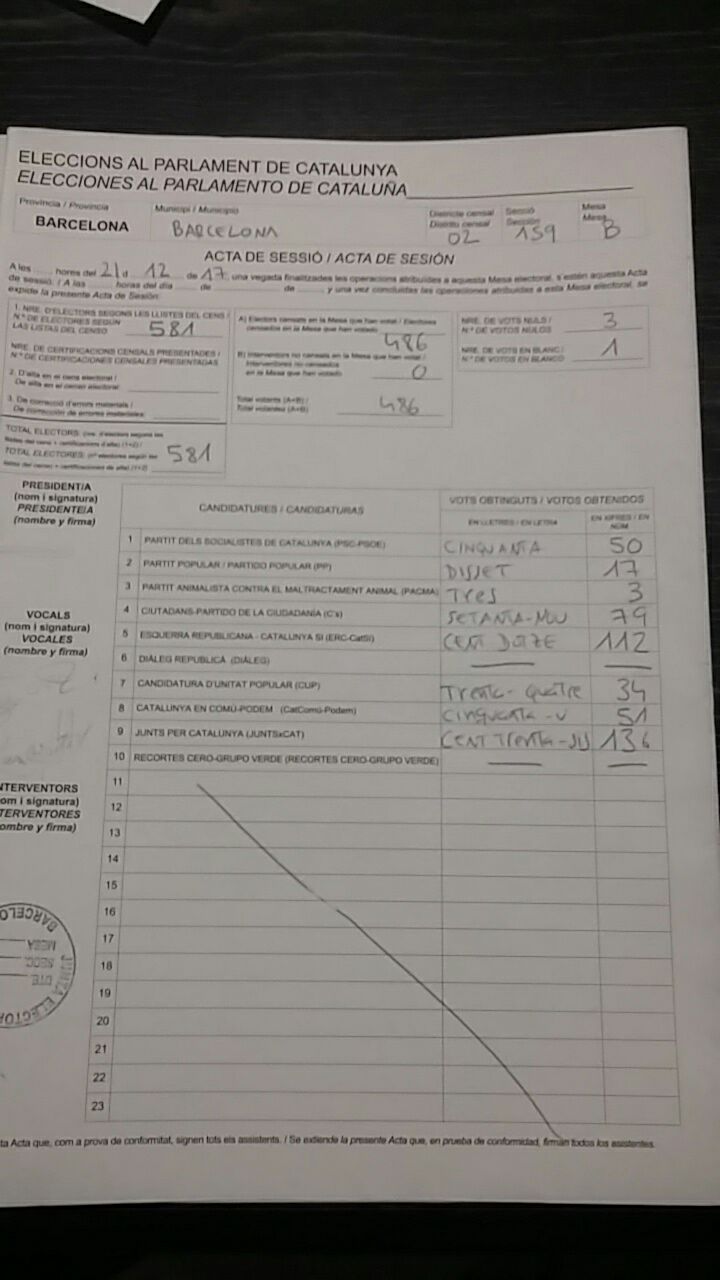 ELECCIONS AL PARLAMENT DE CATALUNYA
ELECCIONES AL PARLAMENTO DE CATALUÑA
Província / Provincia Municipi / Municipio Districte censal Secció Mesa
Distrito censal Sección Mesa
BARCELONA BARCELONA 02 159 B
ACTA DE SESSIÓ / ACTA DE SESIÓN
A les ...... hores del 21 d 12 de 17, una vegada finalitzades les operacions atribuïdes a aquesta Mesa electoral, s'estén aquesta Acta
de sessió. / A las ...... horas del día ...... de ...... de ......, y una vez concluidas las operaciones atribuidas a esta Mesa electoral, se
expide la presente Acta de Sesión:
1. NRE. D'ELECTORS SEGONS LES LLISTES DEL CENS /
N.º DE ELECTORES SEGÚN
LAS LISTAS DEL CENSO 581
NRE. DE CERTIFICACIONS CENSALS PRESENTADES /
N.º DE CERTIFICACIONES CENSALES PRESENTADAS
2. D'alta en el cens electoral /
De alta en el censo electoral:
3. De correcció d'errors materials /
De corrección de errores materiales:
TOTAL ELECTORS:
TOTAL ELECTORES: 581
A) Electors censats en la Mesa que han votat / Electores
censados en la Mesa que han votado 486
B) Interventors no censats en la Mesa que han votat /
Interventores no censados
en la Mesa que han votado 0
Total votants (A+B) /
Total votantes (A+B) 486
NRE. DE VOTS NULS /
N.º DE VOTOS NULOS 3
NRE. DE VOTS EN BLANC /
N.º DE VOTOS EN BLANCO 1
PRESIDENT/A
(nom i signatura)
PRESIDENTE/A
(nombre y firma)
VOCALS
(nom i signatura)
VOCALES
(nombre y firma)
NTERVENTORS
om i signatura)
TERVENTORES
ombre y firma)
CANDIDATURES / CANDIDATURAS VOTS OBTINGUTS / VOTOS OBTENIDOS
EN LLETRES / EN LETRA EN XIFRES / EN NÚM
1 PARTIT DELS SOCIALISTES DE CATALUNYA (PSC-PSOE) CINQUANTA 50
2 PARTIT POPULAR / PARTIDO POPULAR (PP) DISSET 17
3 PARTIT ANIMALISTA CONTRA EL MALTRACTAMENT ANIMAL (PACMA) Tres 3
4 CIUTADANS-PARTIDO DE LA CIUDADANÍA (C's) SETANTA-NOU 79
5 ESQUERRA REPUBLICANA - CATALUNYA SÍ (ERC-CatSí) CENT DOTZE 112
6 DIÀLEG REPUBLICÀ (DIÀLEG)
7 CANDIDATURA D'UNITAT POPULAR (CUP) Trenta-quatre 34
8 CATALUNYA EN COMÚ-PODEM (CatComú-Podem) 51
9 JUNTS PER CATALUNYA (JUNTSxCAT) CENT Trenta-SIS 136
10 RECORTES CERO-GRUPO VERDE (RECORTES CERO-GRUPO VERDE)
11
12
13
14
15
16
17
18
19
20
21
22
23
ta Acta que, com a prova de conformitat, signen tots els assistents. / Se extiende la presente Acta que, en prueba de conformidad, firman todos los asistentes.
BARCELO
MESA
SECC.
DTE.
JUNTA ELECTORA